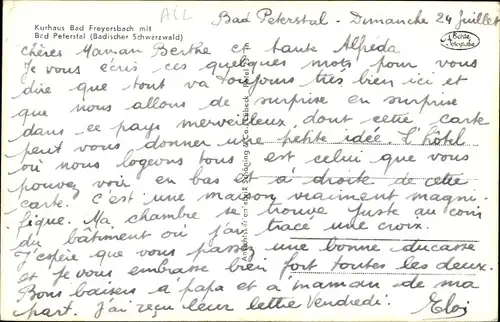 Kurhaus Bad Freyersbach mit
Bad Peterstal (Badischer Schwarzwald)
ALL
Bad Peterstal - Dimanche 24 juillet
Echte Fotografie
chères Maman Berthe et tante Alfréda
Je vous écris ces quelques mots pour vous
dire que tout va toujours très bien ici et
que nous allons de surprise en surprise
dans ce pays merveilleux dont cette carte
peut vous donner une petite idée. l'hôtel
où nous logeons tous est celui que vous
pouvez voir en bas et à droite de cette
carte. C'est une maison vraiment magni-
fique. Ma chambre se trouve juste au coin
du bâtiment où j'ai tracé une croix.
J'espère que vous passez une bonne ducasse
et Je vous embrasse bien fort toutes les deux.
Bons baisers à papa et à maman de ma
part. J'ai reçu leur lettre Vendredi. Eloi